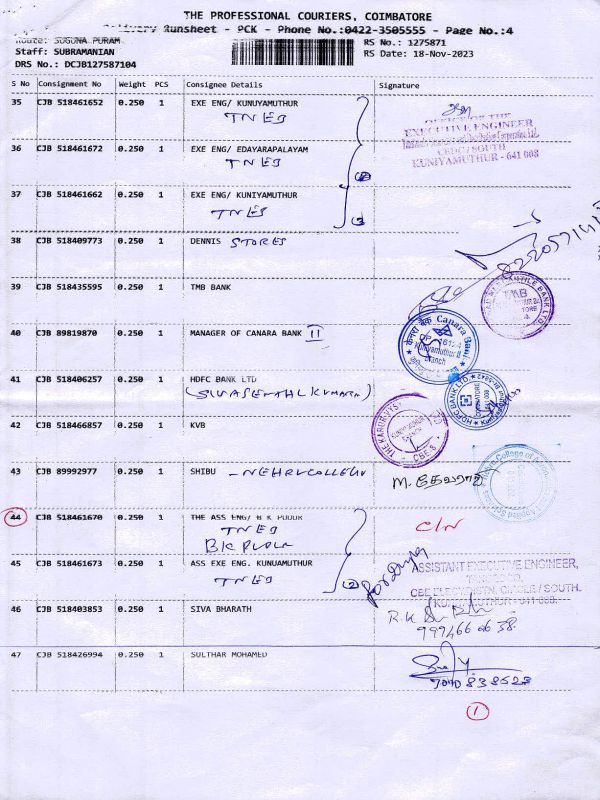 THE PROFESSIONAL COURIERS, COIMBATORE
Delivery Runsheet - PCK - Phone No.:0422-3505555 - Page No.:4
Route: SUGUNA PURAM
RS No.: 1275871
Staff: SUBRAMANIAN
RS Date: 18-Nov-2023
DRS No.: DCJB127587104
S No Consignment No Weight PCS Consignee Details Signature
35 CJB 518461652 0.250 1 EXE ENG/ KUNUYAMUTHUR
TNEB
OFFICE OF THE
EXECUTIVE ENGINEER
CEDC / SOUTH
KUNIYAMUTHUR - 641 008
36 CJB 518461672 0.250 1 EXE ENG/ EDAYARAPALAYAM
TNEB
37 CJB 518461662 0.250 1 EXE ENG/ KUNIYAMUTHUR
TNEB
38 CJB 518409773 0.250 1 DENNIS STORES
39 CJB 518435595 0.250 1 TMB BANK
TMB
40 CJB 89819870 0.250 1 MANAGER OF CANARA BANK II
Canara Bank
Kuniyamuthur II
Branch
41 CJB 518406257 0.250 1 HDFC BANK LTD
(SIVASENTHL KUMARA)
HDFC BANK LTD.
42 CJB 518466857 0.250 1 KVB
THE KARUR VYSYA
CBE
43 CJB 89992977 0.250 1 SHIBU - NEHRU COLLEGE
M. தேவராஜ்
44 CJB 518461670 0.250 1 THE ASS ENG/ B K PUDUR
TNEB
BK PUDUR
C/N
45 CJB 518461673 0.250 1 ASS EXE ENG. KUNUAMUTHUR
TNEB
2
ASSISTANT EXECUTIVE ENGINEER,
TANGEDCO,
CBE ELEC. DISTN. CIRCLE / SOUTH.
KUNIYAMUTHUR - 641 008.
46 CJB 518403853 0.250 1 SIVA BHARATH
47 CJB 518426994 0.250 1 SULTHAR MOHAMED
1